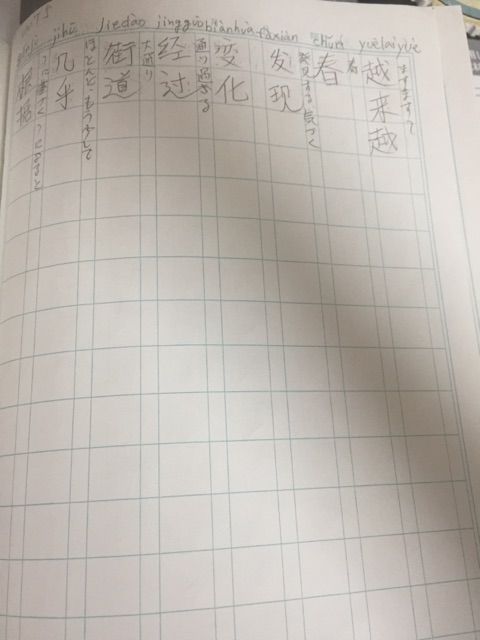 yuèláiyuè
越来越
ますます〜
chūn
春
春
fāxiàn
发现
発見する 気づく
biànhuà
变化
jīngguò
经过
通り過ぎる
jiēdào
街道
大通り
jīhū
几乎
ほとんど・もう少しで
根据